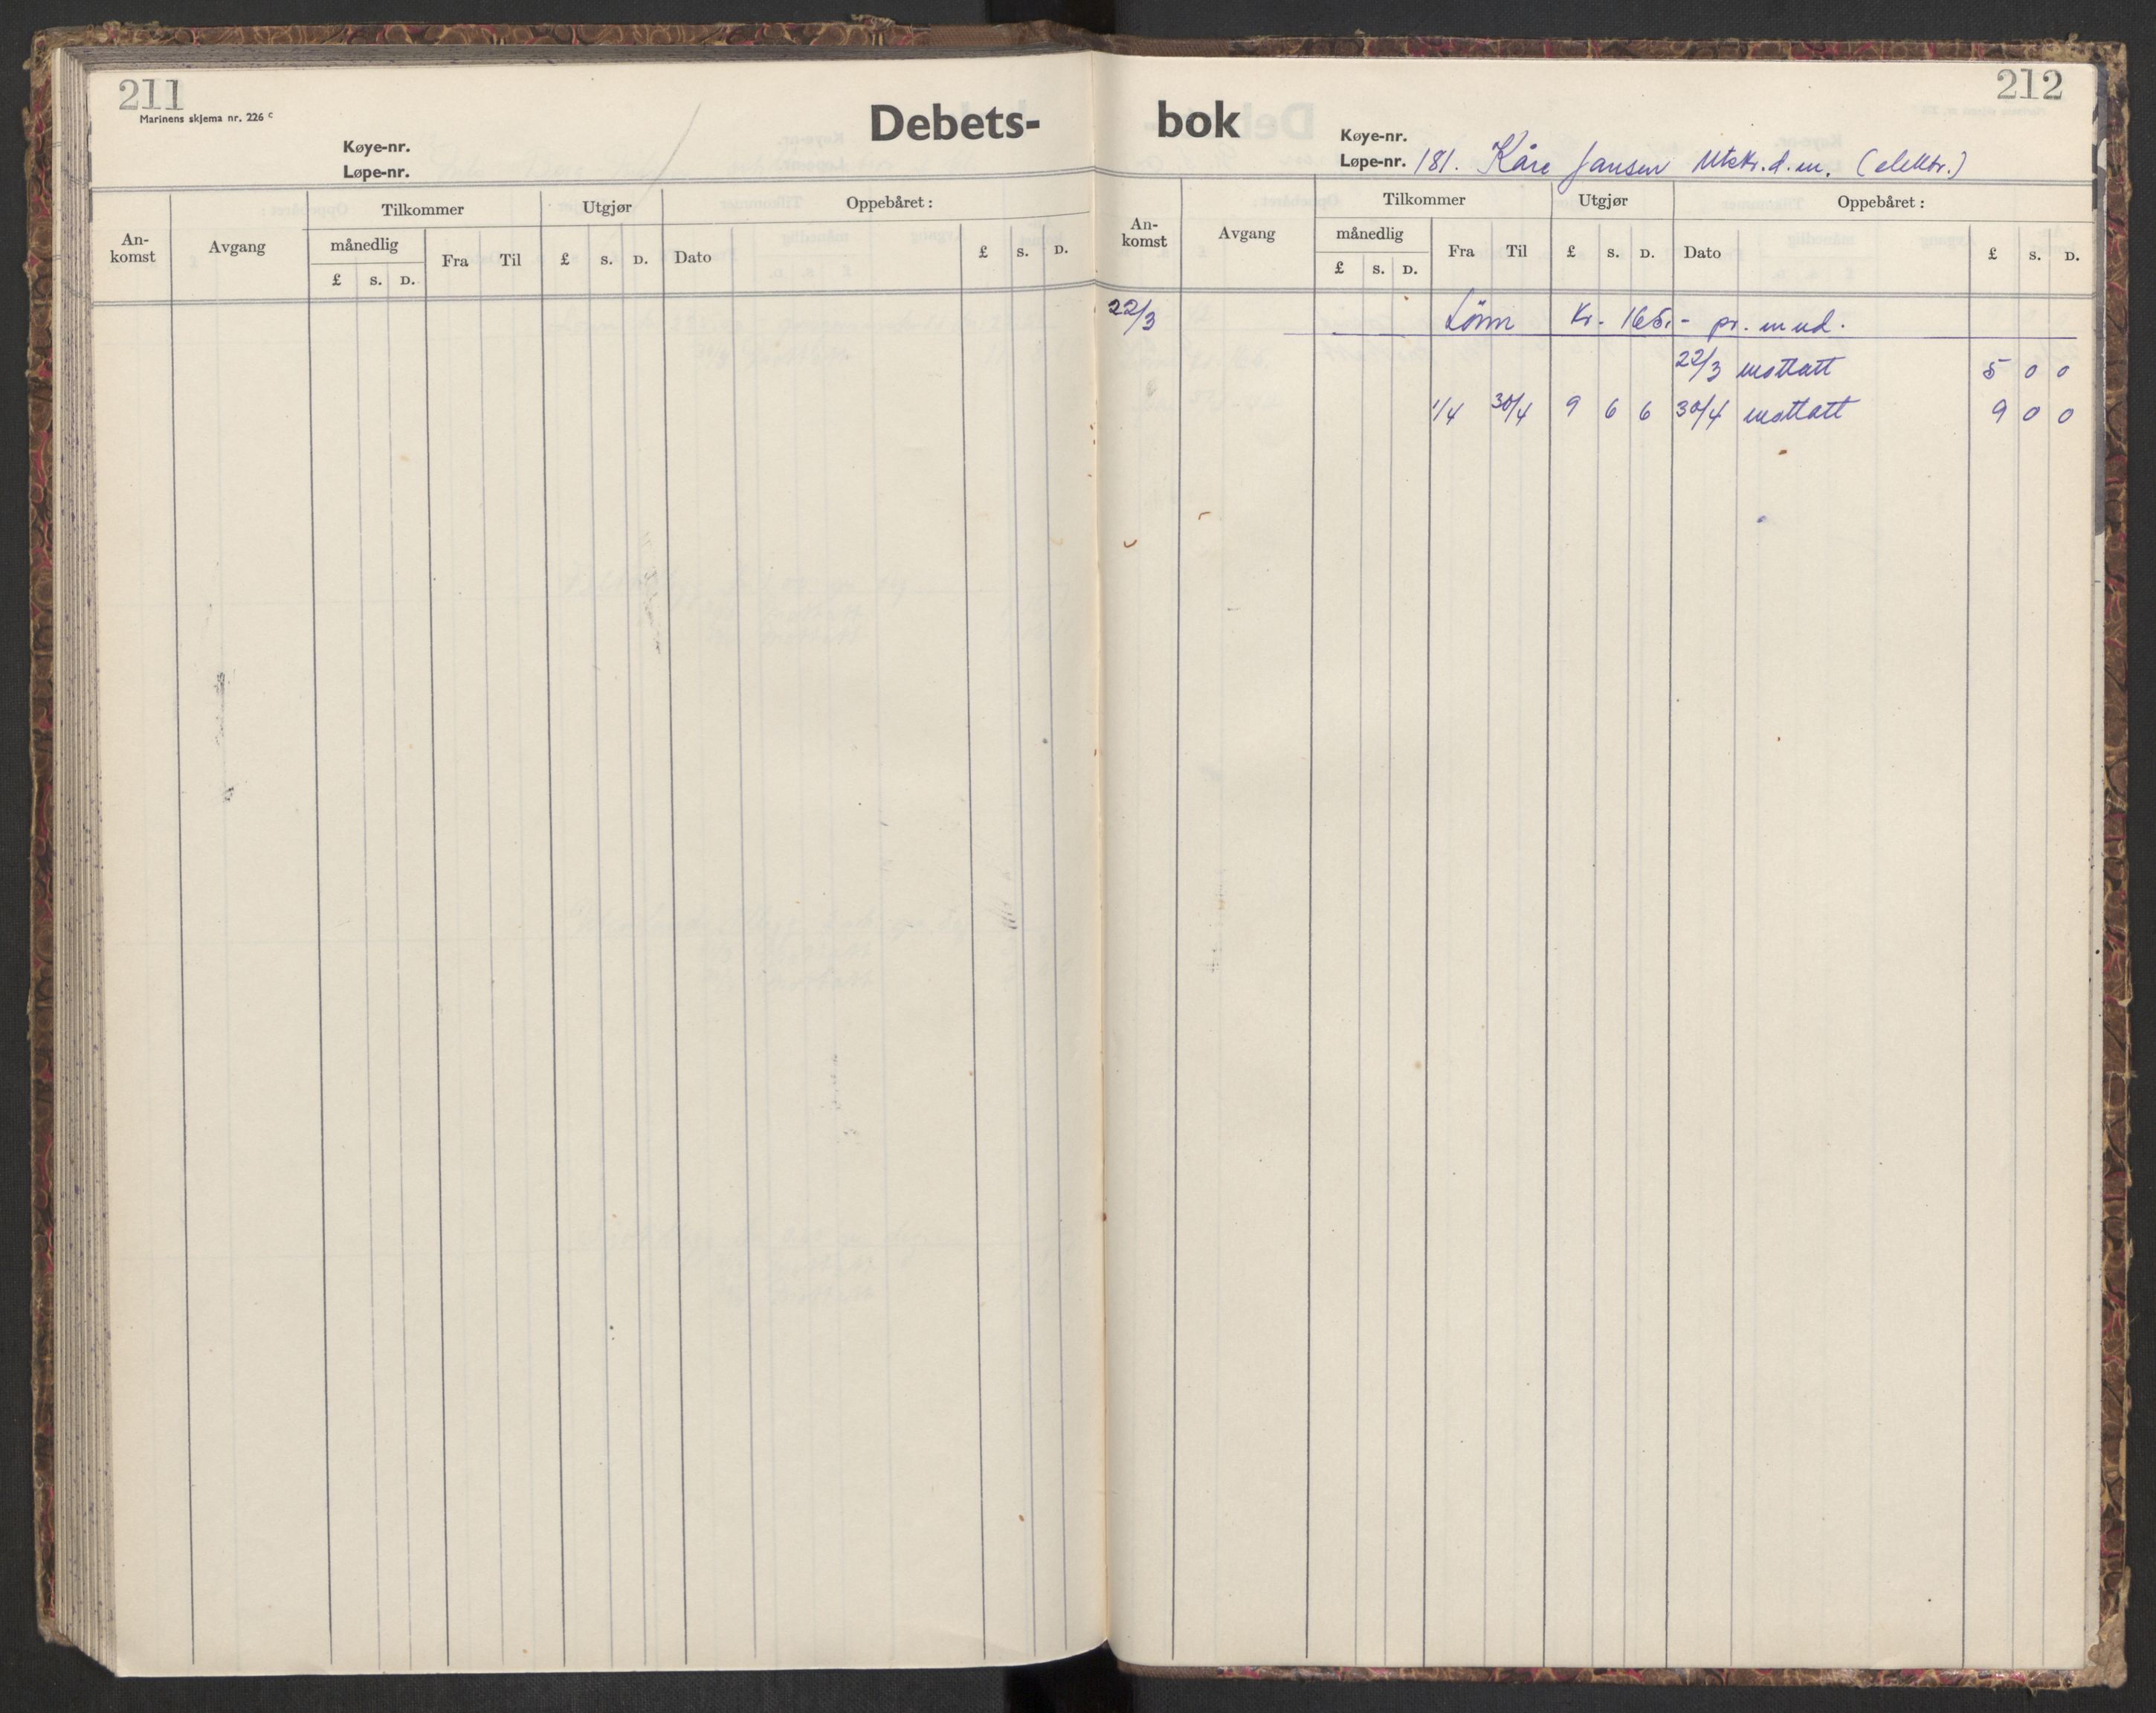 211
Marinens skjema nr. 226 c
Debets-
Køye-nr.
Løpe-nr.
An-komst Avgang Tilkommer Utgjør Oppebåret:
månedlig Fra Til £ s. D. Dato £ s. D.
£ s. D.
212
bok
Køye-nr.
Løpe-nr. 181. Kåre Jansen Utskr. d. m. (elektr.)
An-komst Avgang Tilkommer Utgjør Oppebåret:
månedlig Fra Til £ s. D. Dato £ s. D.
£ s. D.
22/3 Lönn Kr. 165.- pr. mnd.
22/3 mottatt 5 0 0
1/4 30/4 9 6 6 30/4 mottatt 9 0 0